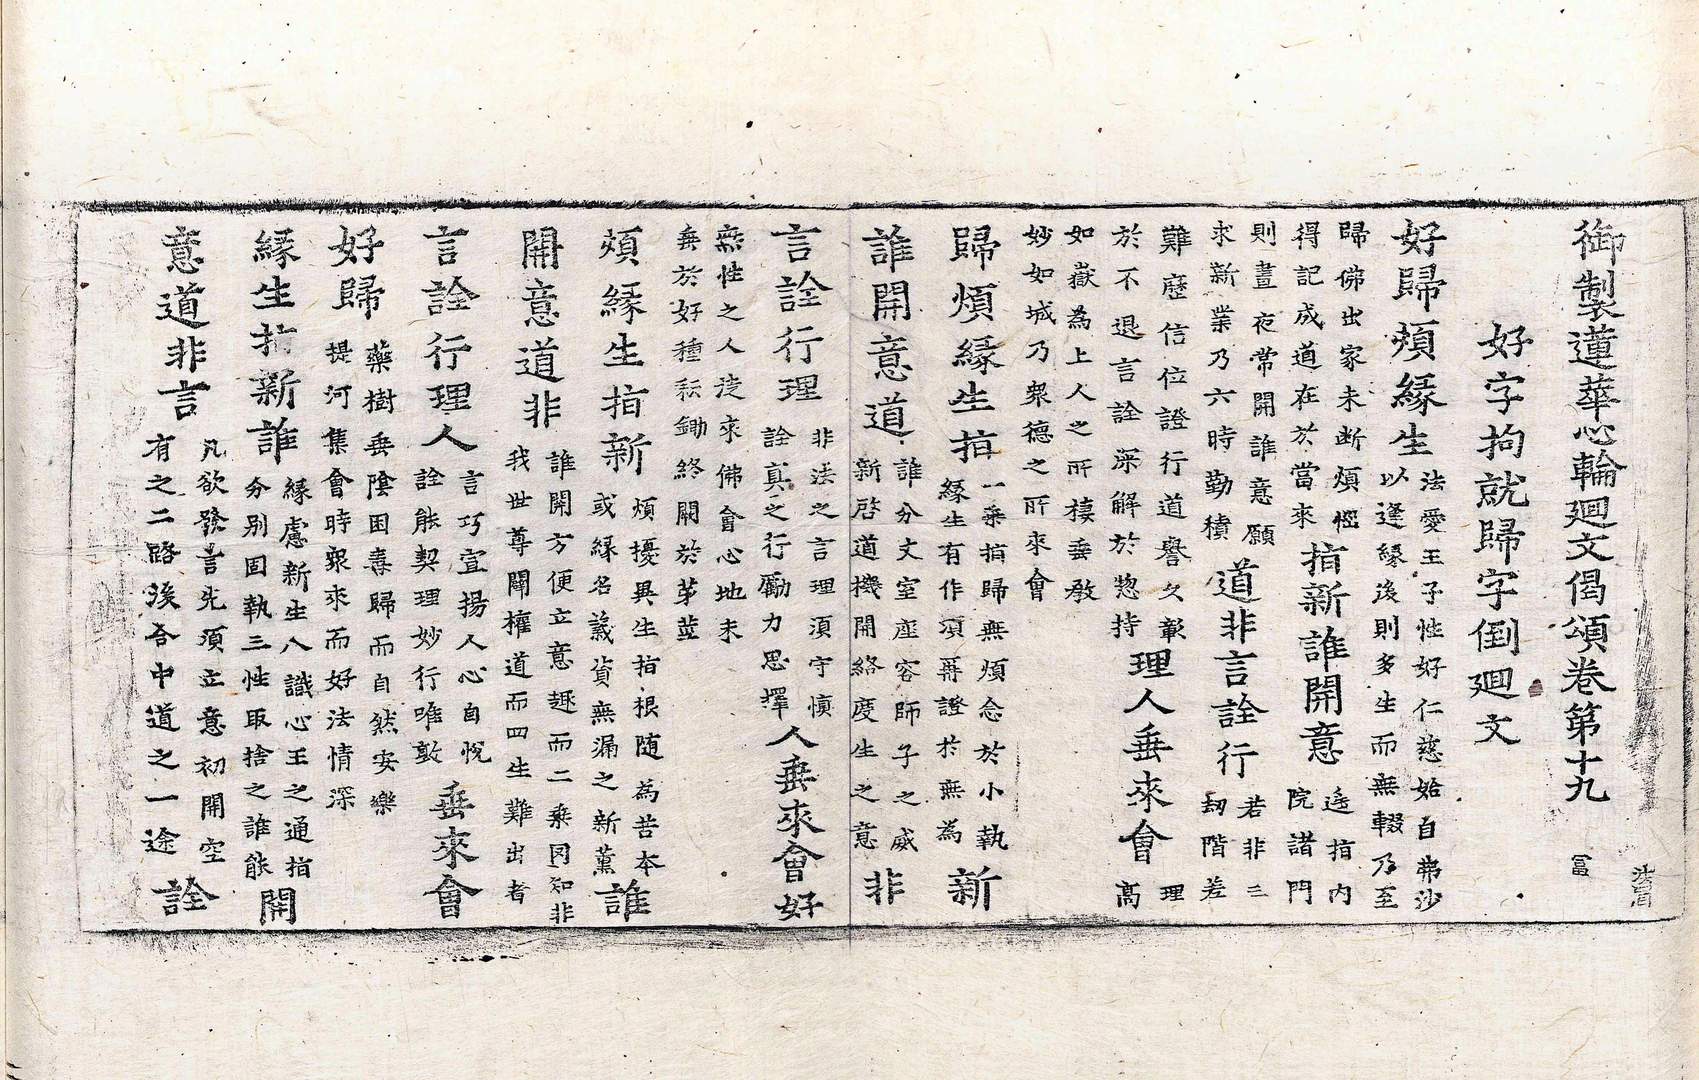 御製蓮華心輪廻文偈頌卷第十九 富
好字拘就歸字倒廻文
好歸煩緣生
法愛王子性好仁慈始自弗沙
以逢緣後則多生而無輟乃至
歸佛出家未断煩惱
得記成道在於當來
指新誰開意
遙指内
院諸門
則晝夜常開誰意願
求新業乃六時勤積
道非言詮行
若非三
劫階差
難歷信位證行道譽久彰
於不退言詮深解於惣持
理人垂來會
理
高
如嶽為上人之所棲垂教
妙如城乃衆德之所來會
歸煩緣生指
一乘指歸無煩念於小執
緣生有作須再證於無為
新
誰開意道
誰分丈室座容師子之威
新啓道機開絡度生之意
非
言詮行理
非法之言理須守慎
詮真之行勵力思擇
人垂來會好
無性之人從來佛會心地未
垂於好種秐鋤終闕於苐
煩緣生指新
煩擾異生指根随為苦本
或緣名義資無漏之新薰
誰
開意道非
誰開方便立意趣而二乘罔知非
我世尊闡權道而四生難出者
言詮行理人
言巧宣揚人心自悅
詮能契理妙行唯敦
垂來會
好歸
藥樹垂陰因夀歸而自然安樂
提河集會時衆來而好法情深
緣生指新誰
緣慮新生八識心王之通指
分別固執三性取捨之誰能
開
意道非言
凡欲發言先須立意初開空
有之二路後合中道之一途
詮